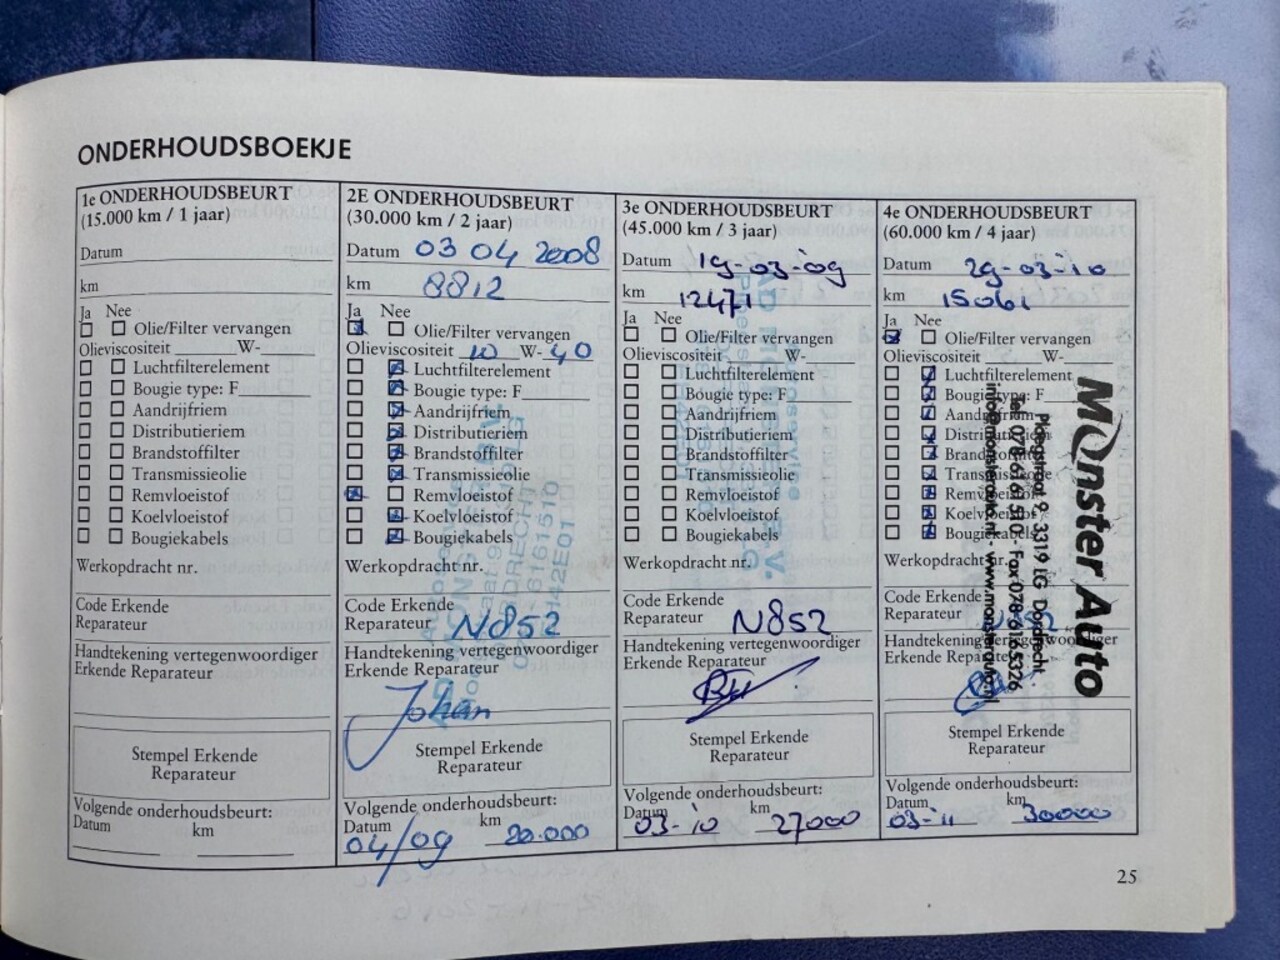 ONDERHOUDSBOEKJE
1e ONDERHOUDSBEURT
(15.000 km / 1 jaar)
Datum
km
Ja Nee
Olie/Filter vervangen
Olieviscositeit W-
Luchtfilterelement
Bougie type: F
Aandrijfriem
Distributieriem
Brandstoffilter
Transmissieolie
Remvloeistof
Koelvloeistof
Bougiekabels
Werkopdracht nr.
Code Erkende
Reparateur
Handtekening vertegenwoordiger
Erkende Reparateur
Stempel Erkende
Reparateur
Volgende onderhoudsbeurt:
Datum km
2E ONDERHOUDSBEURT
(30.000 km / 2 jaar)
Datum 03 04 2008
km 8812
Ja Nee
Olie/Filter vervangen
Olieviscositeit 10 W-40
Luchtfilterelement
Bougie type: F
Aandrijfriem
Distributieriem
Brandstoffilter
Transmissieolie
Remvloeistof
Koelvloeistof
Bougiekabels
Werkopdracht nr.
Code Erkende
Reparateur N852
Handtekening vertegenwoordiger
Erkende Reparateur
Johan
Stempel Erkende
Reparateur
Volgende onderhoudsbeurt:
Datum km
04/09 20.000
3e ONDERHOUDSBEURT
(45.000 km / 3 jaar)
Datum 19-03-09
km 12471
Ja Nee
Olie/Filter vervangen
Olieviscositeit W-
Luchtfilterelement
Bougie type: F
Aandrijfriem
Distributieriem
Brandstoffilter
Transmissieolie
Remvloeistof
Koelvloeistof
Bougiekabels
Werkopdracht nr.
Code Erkende
Reparateur N852
Handtekening vertegenwoordiger
Erkende Reparateur
Stempel Erkende
Reparateur
Volgende onderhoudsbeurt:
Datum km
03-10 27000
4e ONDERHOUDSBEURT
(60.000 km / 4 jaar)
Datum 29-03-10
km 15061
Ja Nee
Olie/Filter vervangen
Olieviscositeit W-
Luchtfilterelement
Bougie type: F
Aandrijfriem
Distributieriem
Brandstoffilter
Transmissieolie
Remvloeistof
Koelvloeistof
Bougiekabels
Werkopdracht nr.
Code Erkende
Reparateur N852
Handtekening vertegenwoordiger
Erkende Reparateur
Stempel Erkende
Reparateur
Volgende onderhoudsbeurt:
Datum km
03-11 30000
Monster Auto
Ploegstraat 9 3319 LG Dordrecht
Tel. 078-6161510 - Fax 078-6165326
info@monsterauto.nl - www.monsterauto.nl
25